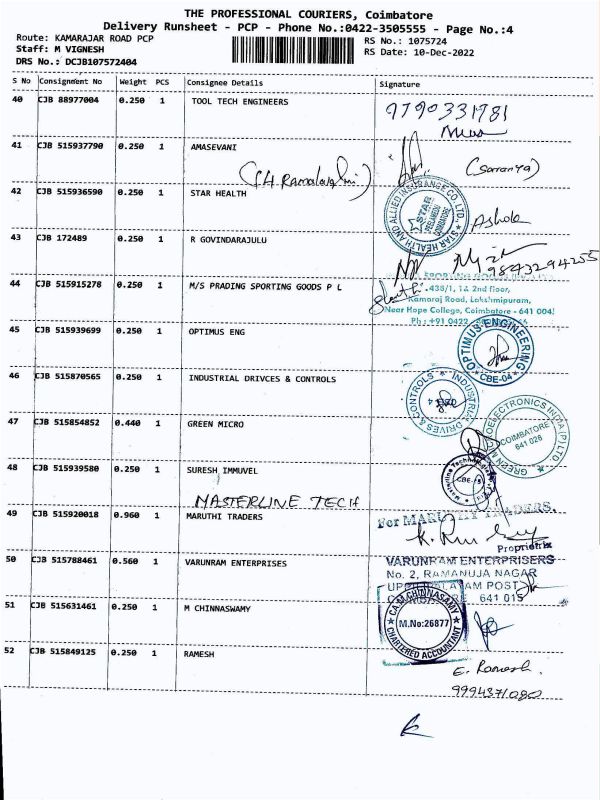 THE PROFESSIONAL COURIERS, Coimbatore
Delivery Runsheet - PCP - Phone No.:0422-3505555 - Page No.:4
Route: KAMARAJAR ROAD PCP
Staff: M VIGNESH
DRS No.: DCJB107572404
RS No.: 1075724
RS Date: 10-Dec-2022
S No Consignment No Weight PCS Consignee Details Signature
40 CJB 88977004 0.250 1 TOOL TECH ENGINEERS 9790331781
41 CJB 515937790 0.250 1 AMASEVANI
(Saranya)
42 CJB 515936590 0.250 1 STAR HEALTH
STAR HEALTH AND ALLIED INSURANCE CO. LTD.
STAR
PEELAMEDU
COIMBATORE
Ashok
43 CJB 172489 0.250 1 R GOVINDARAJULU
9843294255
44 CJB 515915278 0.250 1 M/S PRADING SPORTING GOODS P L
438/1, 1& 2nd floor,
Kamaraj Road, Lakshmipuram,
Near Hope College, Coimbatore - 641 004
Ph : +91 0422
45 CJB 515939699 0.250 1 OPTIMUS ENG
OPTIMUS ENGINEERING
CBE-04
46 CJB 515870565 0.250 1 INDUSTRIAL DRIVCES & CONTROLS
INDUSTRIAL DRIVES & CONTROLS
47 CJB 515854852 0.440 1 GREEN MICRO
GREEN MICROELECTRONICS INDIA (P) LTD
COIMBATORE
641 028
48 CJB 515939580 0.250 1 SURESH IMMUVEL
MASTERLINE TECH
49 CJB 515920018 0.960 1 MARUTHI TRADERS
For MARUTHI TRADERS,
Proprietrix
50 CJB 515788461 0.560 1 VARUNRAM ENTERPRISES
VARUNRAM ENTERPRISERS
No. 2, RAMANUJA NAGAR
641 015
51 CJB 515631461 0.250 1 M CHINNASWAMY
CA.M.CHINNASAMY
M.No:26877
CHARTERED ACCOUNTANT
52 CJB 515849125 0.250 1 RAMESH
E. Ramesh.
9994371080